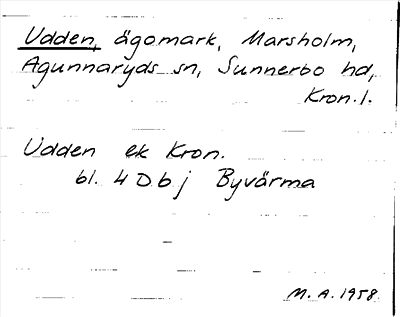 Udden, ägomark, Marsholm,
Agunnaryds sn, Sunnerbo hd,
Kron.l.
Udden ek Kron.
bl. 4 D b j Byvärma
M. A. 1958